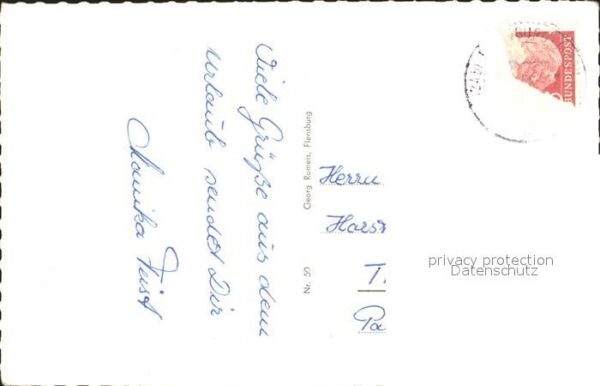 Viele Grüße aus dem
Urlaub sendet Dir
Monika
Georg Romeis, Flensburg
Nr. 50
Herrn
Horst
T.
Pa
privacy protection
Datenschutz
BUNDESPOST